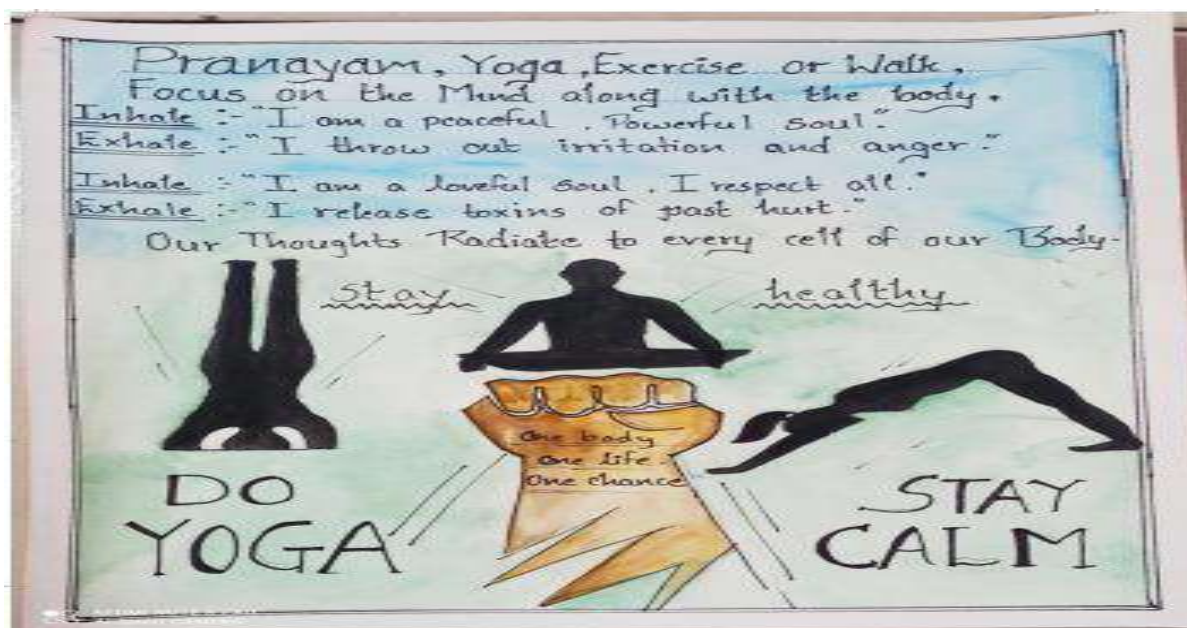 Pranayam, Yoga, Exercise or Walk,
Focus on the Mind along with the body.
Inhale :- "I am a peaceful, Powerful soul."
Exhale :- "I throw out irritation and anger."
Inhale :- "I am a loveful soul, I respect all."
Exhale :- "I release toxins of past hurt."
Our Thoughts Radiate to every cell of our Body-
stay healthy
One body
One life.
One chance
DO
YOGA
STAY
CALM